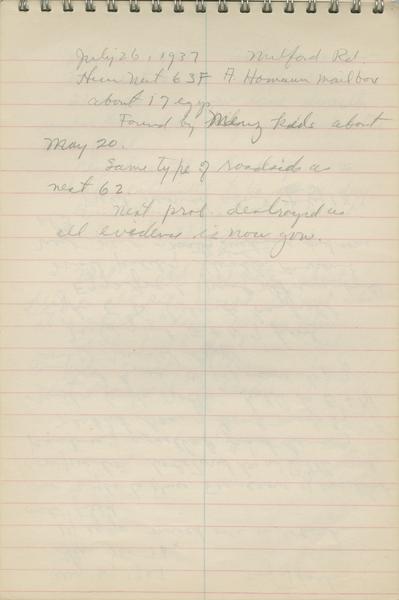 July 26, 1937 Milford Rd.
Hun Nest 63F A Homann mailbox
about 17 eggs
Found by Menz kids about
May 20.
Same type of roadside as
nest 62.
Nest prob. destroyed as
all evidence is now gone.